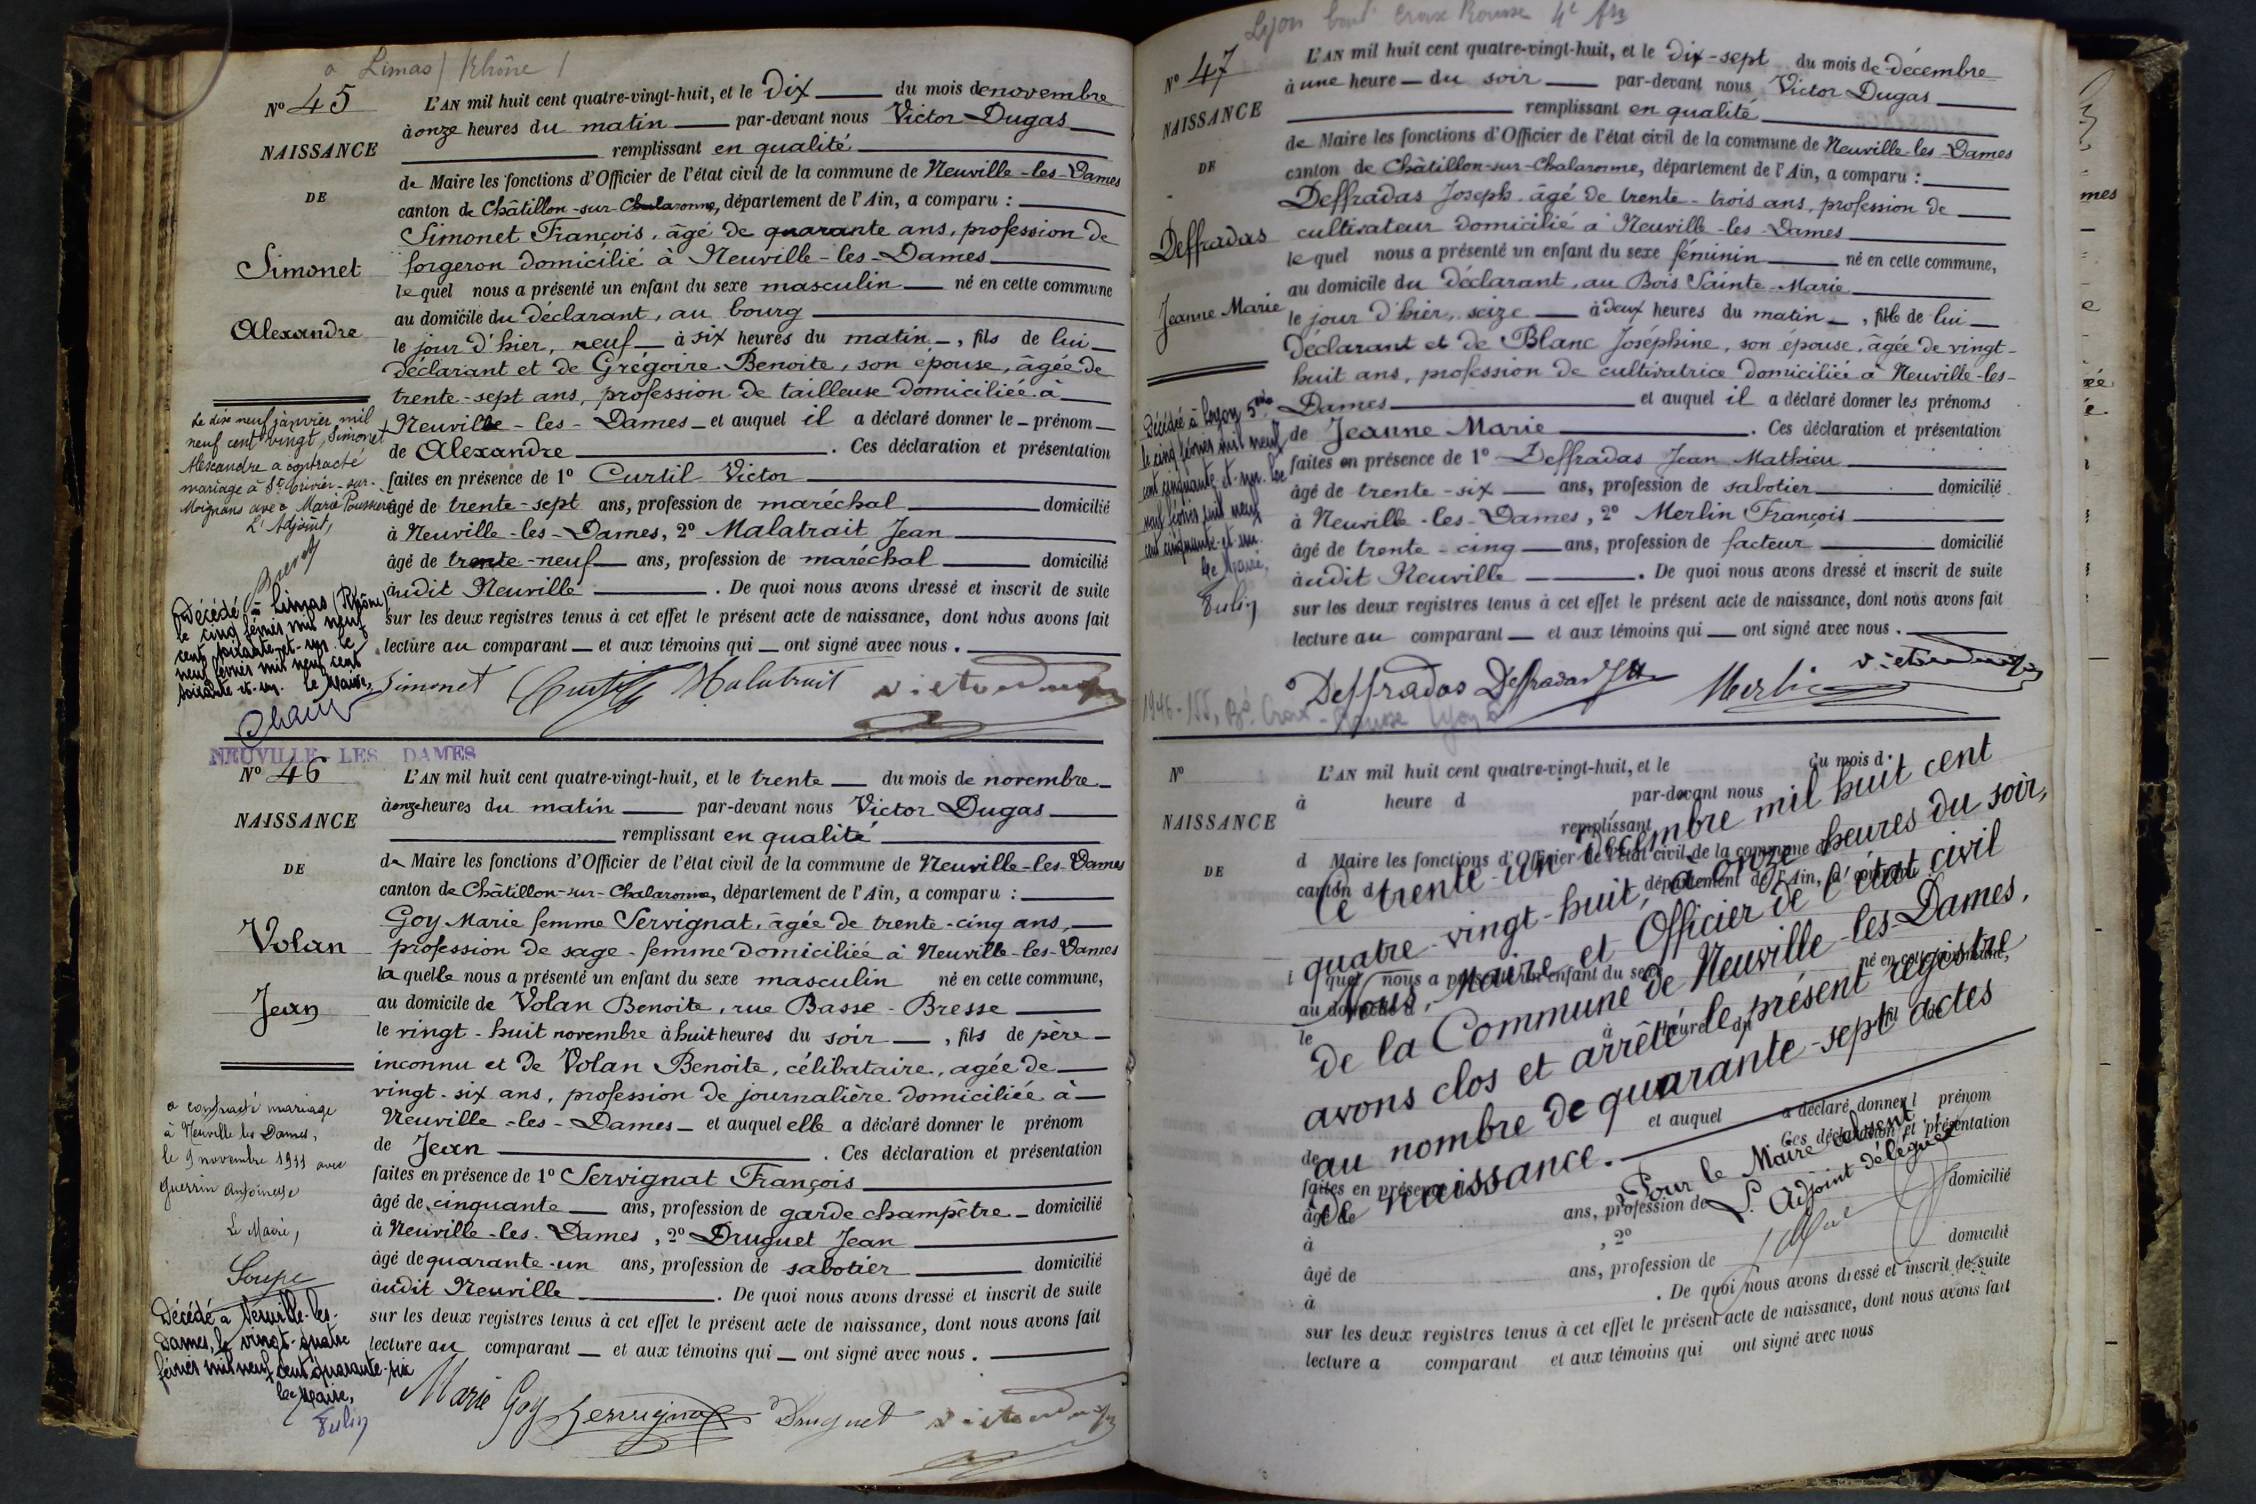 a Limas / Rhône /
Nº 45
NAISSANCE
DE
Simonet
Alexandre
L'AN mil huit cent quatre-vingt-huit, et le dix du mois de novembre
à onze heures du matin par-devant nous Victor Dugas
remplissant en qualité
de Maire les fonctions d'Officier de l'état civil de la commune de Neuville-les-Dames
canton de Châtillon-sur-Chalaronne, département de l'Ain, a comparu :
Simonet François, âgé de quarante ans, profession de
forgeron domicilié à Neuville-les-Dames
lequel nous a présenté un enfant du sexe masculin né en cette commune
au domicile du déclarant, au bourg
le jour d'hier, neuf à six heures du matin, fils de lui
déclarant et de Grégoire Benoite, son épouse, âgée de
trente-sept ans, profession de tailleuse domiciliée à
Neuville-les-Dames et auquel il a déclaré donner le prénom
de Alexandre. Ces déclaration et présentation
faites en présence de 1º Curtil Victor
âgé de trente-sept ans, profession de maréchal domicilié
à Neuville-les-Dames, 2º Malatrait Jean
âgé de trente-neuf ans, profession de maréchal domicilié
audit Neuville. De quoi nous avons dressé et inscrit de suite
sur les deux registres tenus à cet effet le présent acte de naissance, dont nous avons fait
lecture au comparant et aux témoins qui ont signé avec nous.
Simonet Curtil Malatrait Victor Dugas
Le dix neuf janvier mil
neuf cent vingt, Simonet
Alexandre a contracté
mariage à St Trivier-sur-
Moignans avec Marie
L'Adjoint,
Décédé à Limas (Rhône)
le cinq février mil neuf
cent soixante-et-un. Le
neuf février mil neuf cent
soixante-et-un. Le Maire,
NEUVILLE LES DAMES
Nº 46
NAISSANCE
DE
Volan
Jean
L'AN mil huit cent quatre-vingt-huit, et le trente du mois de novembre
à onze heures du matin par-devant nous Victor Dugas
remplissant en qualité
de Maire les fonctions d'Officier de l'état civil de la commune de Neuville-les-Dames
canton de Châtillon-sur-Chalaronne, département de l'Ain, a comparu :
Goy Marie femme Servignat, âgée de trente-cinq ans,
profession de sage-femme domiciliée à Neuville-les-Dames
laquelle nous a présenté un enfant du sexe masculin né en cette commune,
au domicile de Volan Benoite, rue Basse-Bresse
le vingt-huit novembre à huit heures du soir, fils de père
inconnu et de Volan Benoite, célibataire, agée de
vingt-six ans, profession de journalière domiciliée à
Neuville-les-Dames et auquel elle a déclaré donner le prénom
de Jean. Ces déclaration et présentation
faites en présence de 1º Servignat François
âgé de cinquante ans, profession de garde champêtre domicilié
à Neuville-les-Dames, 2º Druguet Jean
âgé de quarante-un ans, profession de sabotier domicilié
audit Neuville. De quoi nous avons dressé et inscrit de suite
sur les deux registres tenus à cet effet le présent acte de naissance, dont nous avons fait
lecture au comparant et aux témoins qui ont signé avec nous.
Marie Goy Servignat Druguet Victor Dugas
a contracté mariage
à Neuville les Dames,
le 9 novembre 1911 avec
Guerrin Antoinese
Le Maire,
Soupe
Décédé à Neuville-les-
Dames, le vingt-quatre
février mil neuf cent quarante-six
Le Maire,
Tulin
Lyon Croix Rousse 4e
Nº 47
NAISSANCE
DE
Deffradas
Jeanne Marie
L'AN mil huit cent quatre-vingt-huit, et le dix-sept du mois de décembre
à une heure du soir par-devant nous Victor Dugas
remplissant en qualité
de Maire les fonctions d'Officier de l'état civil de la commune de Neuville-les-Dames
canton de Châtillon-sur-Chalaronne, département de l'Ain, a comparu :
Deffradas Joseph, âgé de trente-trois ans, profession de
cultivateur domicilié à Neuville-les-Dames
lequel nous a présenté un enfant du sexe féminin né en cette commune,
au domicile du déclarant, au Bois Sainte-Marie
le jour d'hier, seize à deux heures du matin, fille de lui
déclarant et de Blanc Joséphine, son épouse, âgée de vingt-
huit ans, profession de cultivatrice domiciliée à Neuville-les-
Dames et auquel il a déclaré donner les prénoms
de Jeanne Marie. Ces déclaration et présentation
faites en présence de 1º Deffradas Jean Mathieu
âgé de trente-six ans, profession de sabotier domicilié
à Neuville-les-Dames, 2º Merlin François
âgé de trente-cinq ans, profession de facteur domicilié
audit Neuville. De quoi nous avons dressé et inscrit de suite
sur les deux registres tenus à cet effet le présent acte de naissance, dont nous avons fait
lecture au comparant et aux témoins qui ont signé avec nous.
Deffradas Deffradas Merlin Victor Dugas
Décédée à Lyon 5me
le cinq février mil neuf
cent cinquante-et-un. Le
neuf février mil neuf
cent cinquante-et-un.
Le Maire,
Tulin
1946-155, Croix-Rousse Lyon
Nº
NAISSANCE
DE
L'AN mil huit cent quatre-vingt-huit, et le du mois d
à heure d par-devant nous
remplissant
d Maire les fonctions d'Officier de l'état civil de la commune d
canton d département de l'Ain, a comparu
l quel nous a présenté un enfant du sexe né en cette commune,
au domicile d
le à heure du fil de
et auquel a déclaré donner l prénom
de Ces déclaration et présentation
faites en présence
âgé de ans, profession de domicilié
à , 2º
âgé de ans, profession de domicilié
à . De quoi nous avons dressé et inscrit de suite
sur les deux registres tenus à cet effet le présent acte de naissance, dont nous avons fait
lecture a comparant et aux témoins qui ont signé avec nous
Ce trente-un Décembre mil huit cent
quatre-vingt-huit, à onze heures du soir,
Nous, Maire et Officier de l'état civil
de la Commune de Neuville-les-Dames,
avons clos et arrêté le présent registre
au nombre de quarante-sept actes
de naissance.
Pour le Maire absent
L'Adjoint délégué